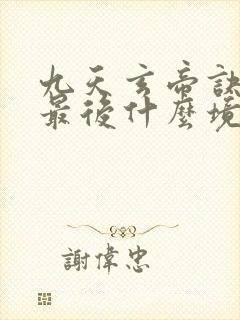 九天玄帝訣
最後什麼境
謝偉忠